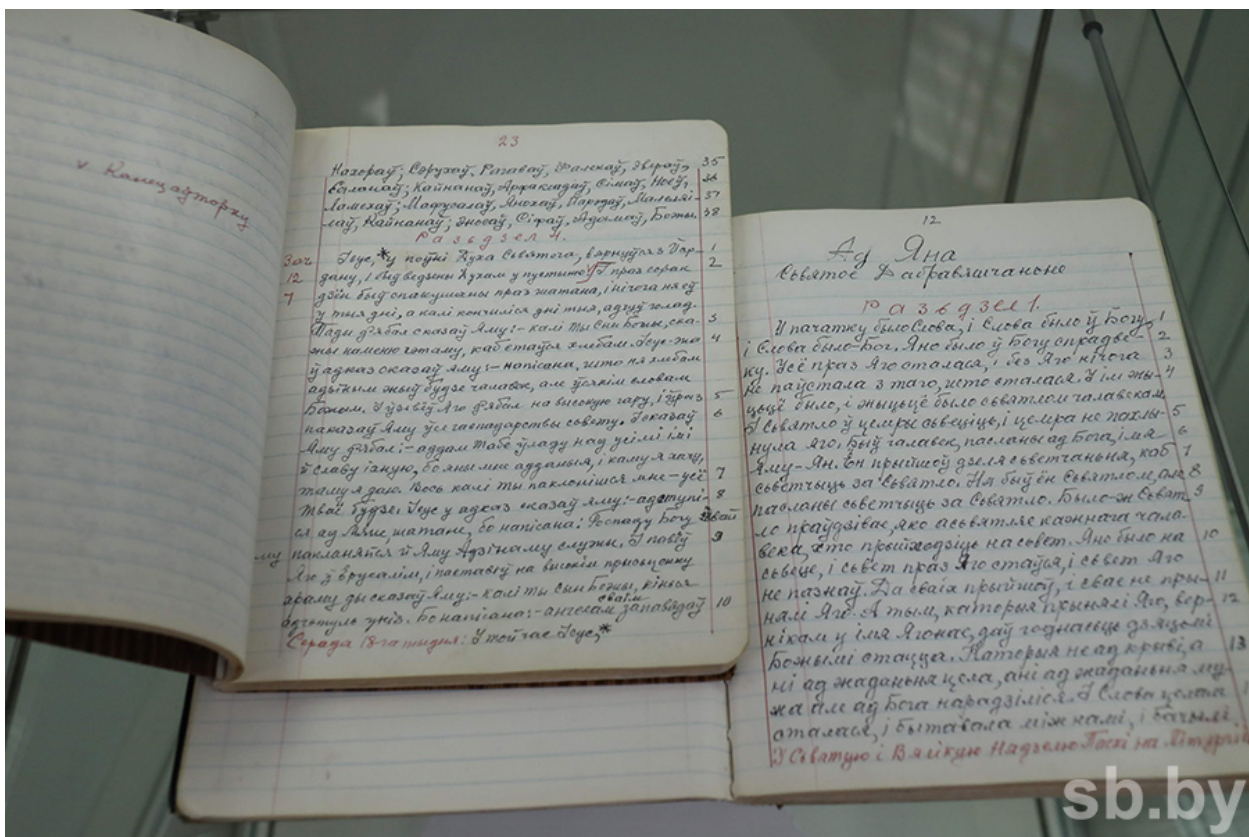 v Канец аўторку
23
Нахораў, Сэрухаў, Рагаваў, Фалекаў, Эвераў, 35
Саланаў; Кайнанаў, Арфаксадаў, Сімаў, Ноеў, 36
Ламехаў; Мафусалаў, Янохаў, Ярэдаў, Малелеі- 37
лаў, Кайнанаў; Эносаў, Сіфаў, Адамаў, Божы. 38
Разьдзел 4.
Зач. Ісус,* у поўні Духа Сьвятога, вярнуўся з Йар- 1
12 дану, і быў ведзены Духам у пустыню. v І праз сорак 2
7 дзён быў спакушаны праз шатана, і нічога ня еў
у тыя дні, а калі кончыліся дні тыя, адчуў голад.
Тады д'ябал сказаў Яму:- калі Ты Сын Божы, ска- 3
жы каменю гэтаму, каб стаўся хлебам. Ісус-жа 4
ў адказ сказаў яму:- напісана, што ня хлебам
адзіным жыў будзе чалавек, але ўсякім словам
Божым. І ўзвёў Яго д'ябал на высокую гару, і ўраз 5
паказаў Яму ўсе гаспадарствы сьвету. І сказаў 6
Яму д'ябал:- аддам Табе ўладу над усімі імі
й славу іхную, бо яны мне адданыя, і каму я хачу,
таму я даю. Вось калі Ты паклонішся мне - усё 7
Тваё будзе. Ісус у адказ сказаў яму:- адступі- 8
ся ад Мяне, шатане, бо напісана: Госпаду Богу Твай
му пакланяйся й Яму Адзінаму служы. І павёў 9
Яго ў Ерусалім, і паставіў на высокім прысьценку
храму ды сказаў Яму:- калі ты сын Божы, кінься
адгэтуль уніз. Бо напісана:- ангелам сваім запавядаў 10
Серада 18-га тыдня: У той час Ісус,*
12
Ад Яна
Сьвятое Дабравяшчаньне
Разьдзел 1.
У пачатку было Слова, і Слова было ў Богу, 1
і Слова было - Бог. Яно было ў Богу спрадве- 2
ку. Усё праз Яго сталася, і без Яго нічога 3
не паўстала з таго, што сталася. У ім жы- 4
цьцё было, і жыцьцё было сьвятлом чалавекам.
І Сьвятло ў цемры сьвеціць, і цемра не пахлы- 5
нула яго. Быў чалавек, пасланы ад Бога, імя 6
Яму - Ян. Ён прыйшоў дзеля сьветчаньня, каб 7
сьветчыць за Сьвятло. Ня быў ён Сьвятлом, але 8
пасланы сьветчыць за Сьвятло. Было-ж Сьват 9
ло праўдзівае, яко асьвятляе кажнага чала-
века, хто прыйходзіць на сьвет. Яно было на 10
сьвеце, і сьвет праз Яго стаўся, і сьвет Яго
не пазнаў. Да сваіх прыйшоў, і свае не пры- 11
нялі Яго. А тым, каторыя прынялі Яго, вер- 12
нікам у імя Ягонае, даў годнасьць дзяцьмі
Божымі стацца. Каторыя не ад крыві, а 13
ні ад жаданьня цела, ані ад жаданьня му-
жа але ад Бога нарадзіліся. І Слова целам
сталася, і бытавала між намі, і бачылі
У Сьвятую і Вялікую Нядзелю Пасхі на Літургіі
sb.by